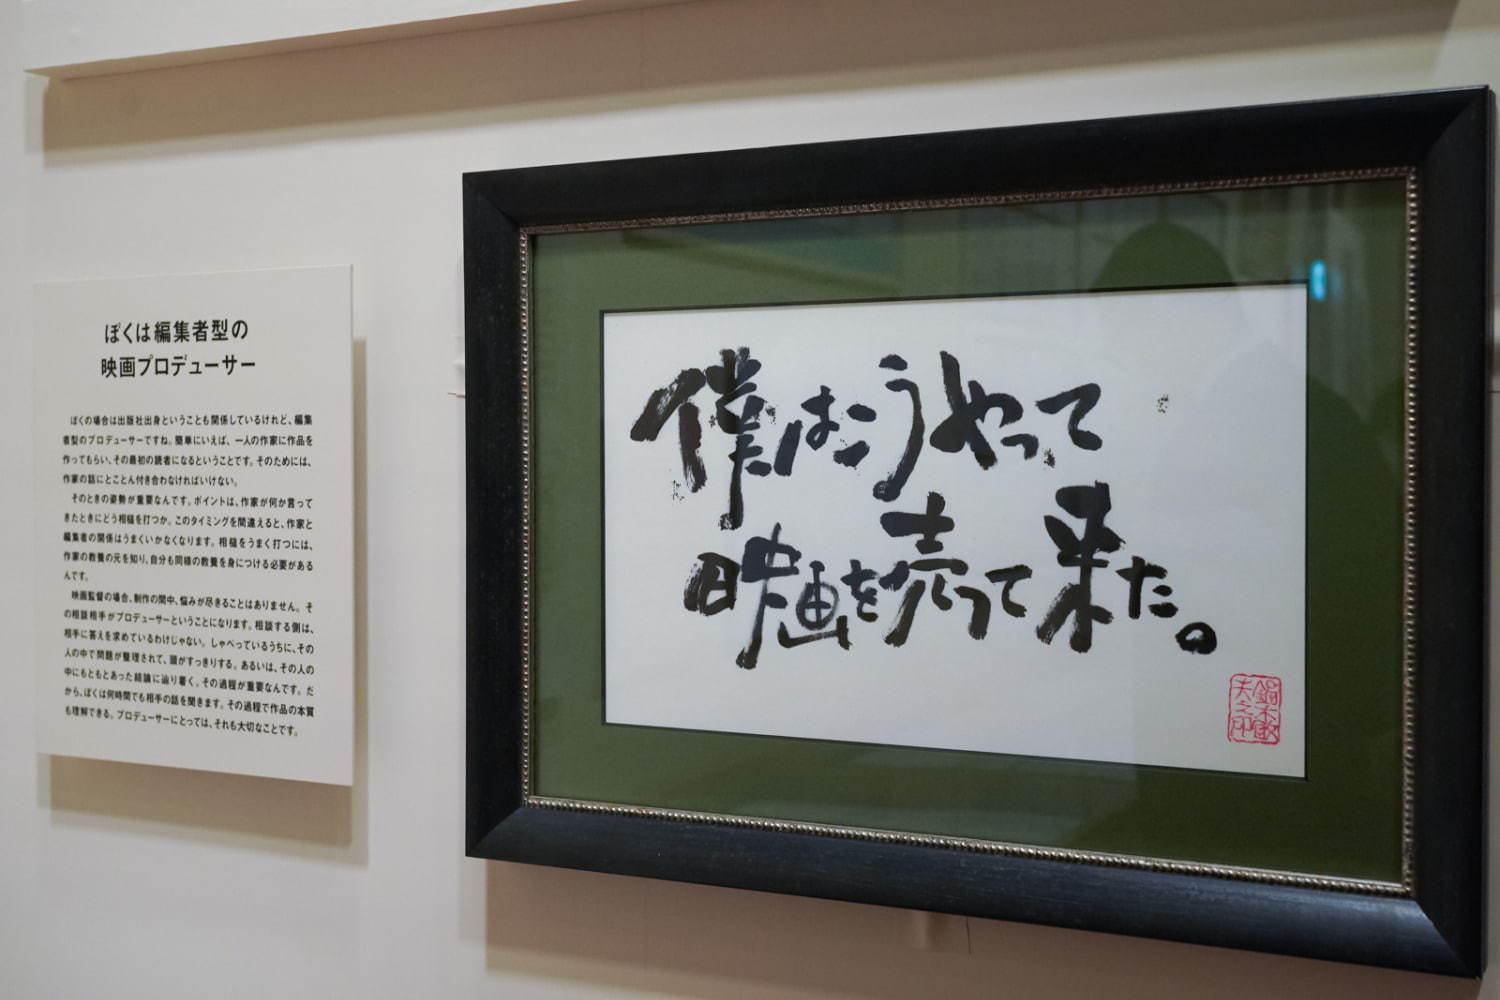 ぼくは編集者型の
映画プロデューサー
ぼくの場合は出版社出身ということも関係しているけれど、編集
者型のプロデューサーですね。簡単にいえば、一人の作家に作品を
作ってもらい、その最初の読者になるということです。そのためには、
作家の話にとことん付き合わなければいけない。
そのときの姿勢が重要なんです。ポイントは、作家が何か言って
きたときにどう相槌を打つか。このタイミングを間違えると、作家と
編集者の関係はうまくいかなくなります。相槌をうまく打つには、
作家の教養の元を知り、自分も同様の教養を身につける必要がある
んです。
映画監督の場合、制作の間中、悩みが尽きることはありません。そ
の相談相手がプロデューサーということになります。相談する側は、
相手に答えを求めているわけじゃない。しゃべっているうちに、その
人の中で問題が整理されて、頭がすっきりする。あるいは、その人の
中にもともとあった結論に辿り着く。その過程が重要なんです。だ
から、ぼくは何時間でも相手の話を聞きます。その過程で作品の本質
も理解できる。プロデューサーにとっては、それも大切なことです。
僕はこうやって
映画を売って来た。